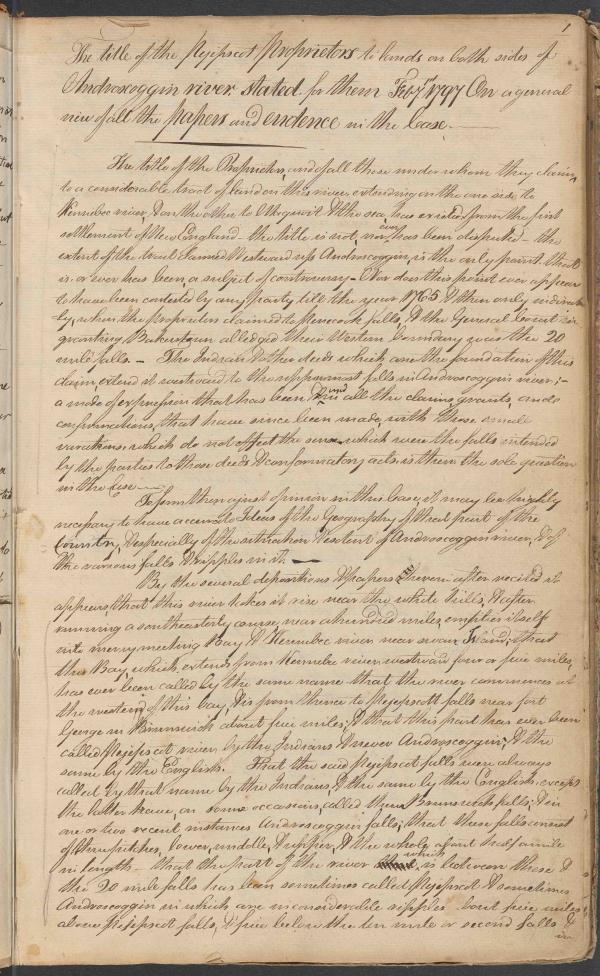 1
The title of the Pejepscot Proprietors to lands on both sides of
Androscoggin river stated for them Feby 1797 On a general
view of all the papers and evidence in the Case.
The title of the Proprietors, and of all those under whom they claim,
to a considerable tract of land on this river, extending on the one side to
Kennebec river, & on the other to Maquoit & the sea, has existed from the first
settlement of New England – the title is not, nor ever has been disputed – the
extent of the tract claimed Westward up Androscoggin, is the only point that
is, or ever has been a subject of controversy – Nor does this point ever appear
to have been contested by any party till the year 1765 & then only indirect
ly, when the Proprietors claimed to Pennecook falls, & the General Court in
granting Bakerstown alledged their Western boundary was the 20
mile falls. – The Indian & other deeds which are the foundation of this
claim, extend it westward to the uppermost falls in Androscoggin river; –
a mode of expression that has been used in all the claims, grants, and
confirmations, that have since been made, with those small
variations, which do not affect the sense, which were the falls intended
by the parties to those deeds & confirmatory acts, is then the sole question
in the Case
To form then a just opinion in this Case, it may be highly
necessary to have accurate Ideas of the Geography of that part of the
Country, & especially of the situation & extent of Androscoggin river, & of
the various falls & ripples in it. —
By the several depositions & papers herein after recited it
appears, that this river takes it rise near the white hills, & after
running a southeasterly course, near a hundred miles, empties itself
into merrymeeting Bay & Kennebec river near swan Island; that
this Bay, which extends from Kennebec river westward four or five miles,
has ever been called by the same name that the river commences at
the western end of this bay, & is from thence to Pejepscott falls near fort
George in Brunswick about five miles; & that this part has ever been
called Pejepscot river by the Indians & never Androscoggin; & the
same by the English. That the said Pejepscot falls were always
called by that name by the Indians, & the same by the English, except
the latter have, on some occasions, called them Brunswick falls, & in
one or two recent instances Androscoggin falls; that these falls consist
of three pitches, lower, middle, & upper, & the whole about half a mile
in length – that the part of the river which is between these &
the 20 mile falls has been sometimes called Pejepscot & sometimes
Androscoggin in which are inconsiderable ripples about five miles
above Pejepscot falls, & five below the ten mile or second falls &
in